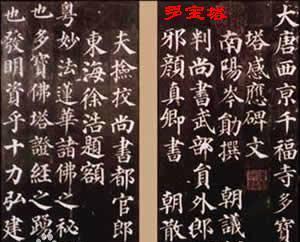 多宝塔
大唐西京千福寺多寶
塔感應碑文
南陽岑勛撰 朝議
判尚書武部員外郎
邪顏真卿書 朝散
夫撿校尚書都官郎
東海徐浩題額
粵妙法蓮華諸佛之秘
也多寶佛塔證經之踴
也發明資乎十力弘建